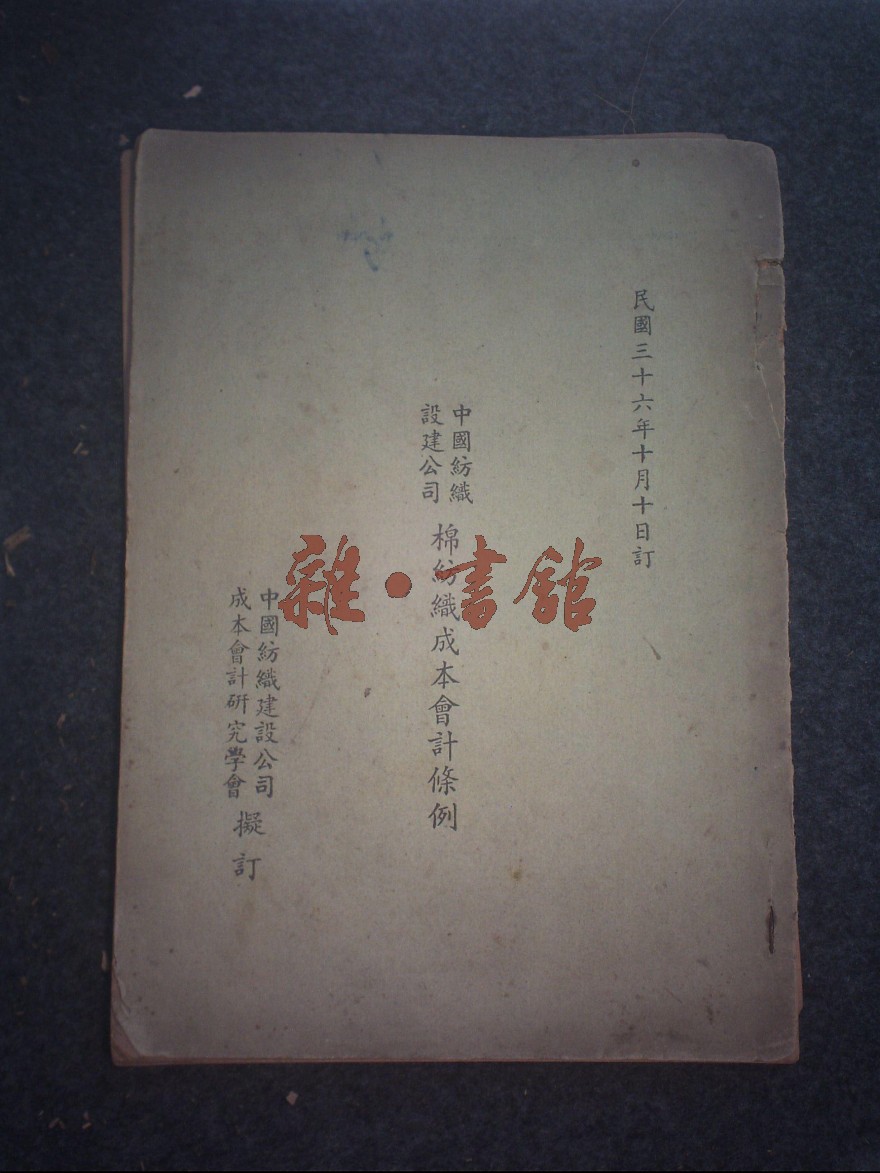 民國三十六年十月十日訂
中國紡織
設建公司
棉紡織成本會計條例
中國紡織建設公司
成本會計研究學會
擬訂
雜·書館